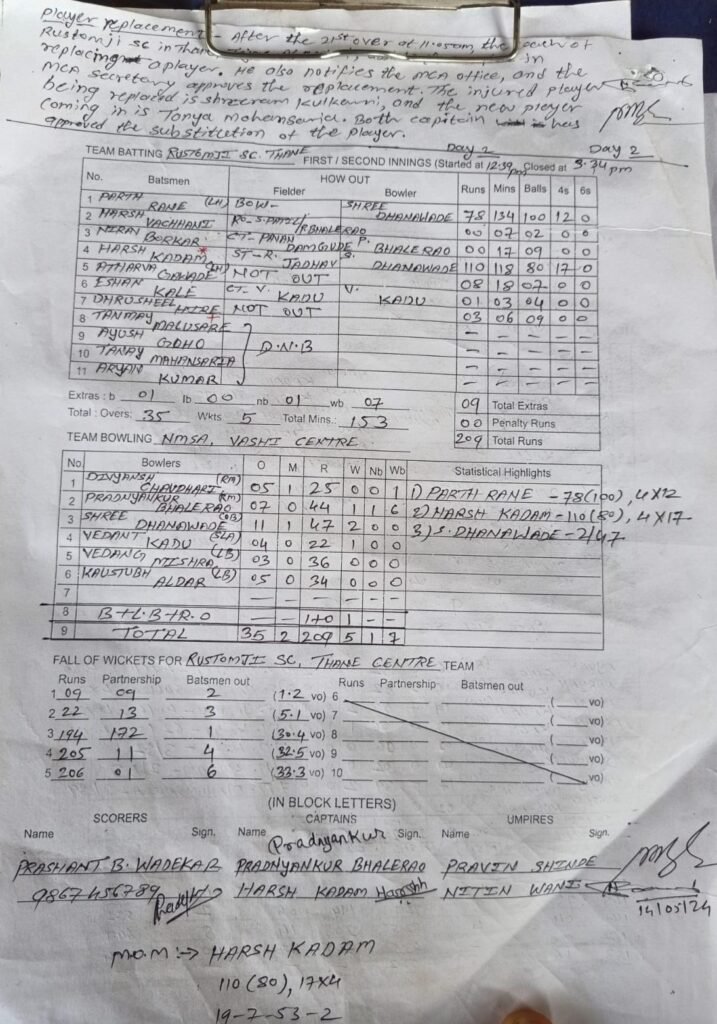 Player replacement - After the 21st over at 11.05am, the coach of
Rustomji SC in Thane in
replacing a player. He also notifies the MCA office, and the
MCA secretary approves the replacement. The injured player
being replaced is shreeram Kulkarni, and the new player
coming in is Tanya Mahansaria. Both captain has
approved the substitution of the player.
TEAM BATTING RUSTOMJI SC. THANE Day 2 Day 2
FIRST / SECOND INNINGS (Started at 12:59 pm Closed at 3.34 pm
No. Batsmen HOW OUT Runs Mins Balls 4s 6s
Fielder Bowler
1 PARTH RANE (LH) BOW- SHREE DHANAWADE 78 134 100 12 0
2 HARSH VACHHANI RO-S.PATIL/P.BHALERAO 00 07 02 0 0
3 NIRAV BORKAR CT- PAVAN DAMGUDE P. BHALERAO 00 17 09 0 0
4 HARSH KADAM* ST-R. JADHAV S. DHANAWADE 110 118 80 17 0
5 ATHARVA GAWADE (LH) NOT OUT 08 18 07 0 0
6 ESHAN KALE CT- V. KADU V. KADU 01 03 04 0 0
7 DHRUSHEEL HIRE NOT OUT 03 06 09 0 0
8 TANMAY MALUSARE + — — — — —
9 AYUSH GOHO D.N.B — — — — —
10 TANAY MAHANSARIA — — — — —
11 ARYAN KUMAR — — — — —
Extras : b 01 lb 00 nb 01 wb 07 09 Total Extras
Total : Overs: 35 Wkts 5 Total Mins.: 153 00 Penalty Runs
209 Total Runs
TEAM BOWLING NMSA, VASHI CENTRE
No. Bowlers O M R W Nb Wb Statistical Highlights
1 DIVYANSH CHAUDHARI (RM) 05 1 25 0 0 1 1) PARTH RANE - 78(100), 4x12
2 PRADNYANKUR BHALERAO (RM) 07 0 44 1 1 6 2) HARSH KADAM - 110(80), 4x17
3 SHREE DHANAWADE (OB) 11 1 47 2 0 0 3) S. DHANAWADE - 2/47
4 VEDANT KADU (SLA) 04 0 22 1 0 0
5 VEDANG MISHRA (LB) 03 0 36 0 0 0
6 KAUSTUBH ALDAR (LB) 05 0 34 0 0 0
7 — — — — — —
8 B+L.B+R.O — — 1+0 1 — —
9 TOTAL 35 2 209 5 1 7
FALL OF WICKETS FOR RUSTOMJI SC, THANE CENTRE TEAM
Runs Partnership Batsmen out Runs Partnership Batsmen out
1 09 09 2 (1.2 vo) 6 ( vo)
2 22 13 3 (5.1 vo) 7 ( vo)
3 194 172 1 (30.4 vo) 8 ( vo)
4 205 11 4 (32.5 vo) 9 ( vo)
5 206 01 6 (33.3 vo) 10 ( vo)
(IN BLOCK LETTERS)
SCORERS CAPTAINS UMPIRES
Name Sign. Name Pradnyankur Sign. Name Sign.
PRASHANT B. WADEKAR PRADNYANKUR BHALERAO PRAVIN SHINDE
9867456789 HARSH KADAM Harshh NITIN WANI
14/05/24
M.O.M :-> HARSH KADAM
110 (80), 17x4
19-7-53-2